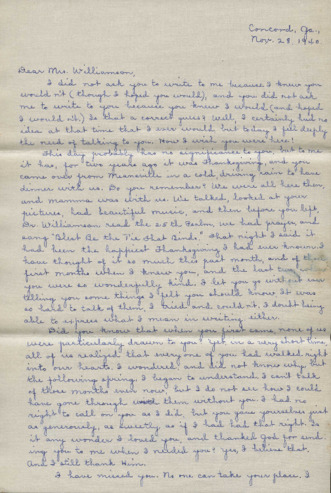 Concord, Ga.,
Nov. 28 1940
Dear Mrs. Williamson,
I did not ask you to write to me because I knew you
would n't (though I hoped you would), and you did not ask
me to write to you because you knew I would (and hoped
I would n't.) Is that a correct guess? Well, I certainly had no
idea at that time that I ever would but today I feel deeply
the need of talking to you. How I wish you were here!
This day probably has no significance to you, but to me
it has, for two years ago it was Thanksgiving, and you
came over from in a cold, driving rain to have
dinner with us. Do you remember? We were all here then,
and mamma was with us. We talked, looked at your
pictures, had beautiful music, and then before you left,
Dr. Williamson read the Psalm, we had prayer and
sang "Blest Be the Tie that Binds." That night I said it
had been the happiest Thanksgiving I had ever known. I
have thought of it so much this past month, and of those
first months when I knew you, and the last when
you were so wonderfully kind. I let you go without ever
telling you some things I felt you should know. It was
so hard to talk of them. I tried and could n't. I doubt being
able to express what I mean in writing either.
Did you know that when you first came, none of us
were particularly drawn to you? Yet in a very short time
all of us realized that every one of you had walked right
into our hearts. I wondered, and did not know why. But
the following spring I began to understand. I can't talk
of those months even now, but I do not see how I could
have gone through with them without you. I had no
right to call on you as I did, but you gave yourselves just
as generously, as sweetly as if I had had that right. Is
it any wonder I loved you, and thanked God for send-
ing you to me when I needed you? Yes, I believe that.
And I still thank Him.
I have missed you. No one can take your place. I